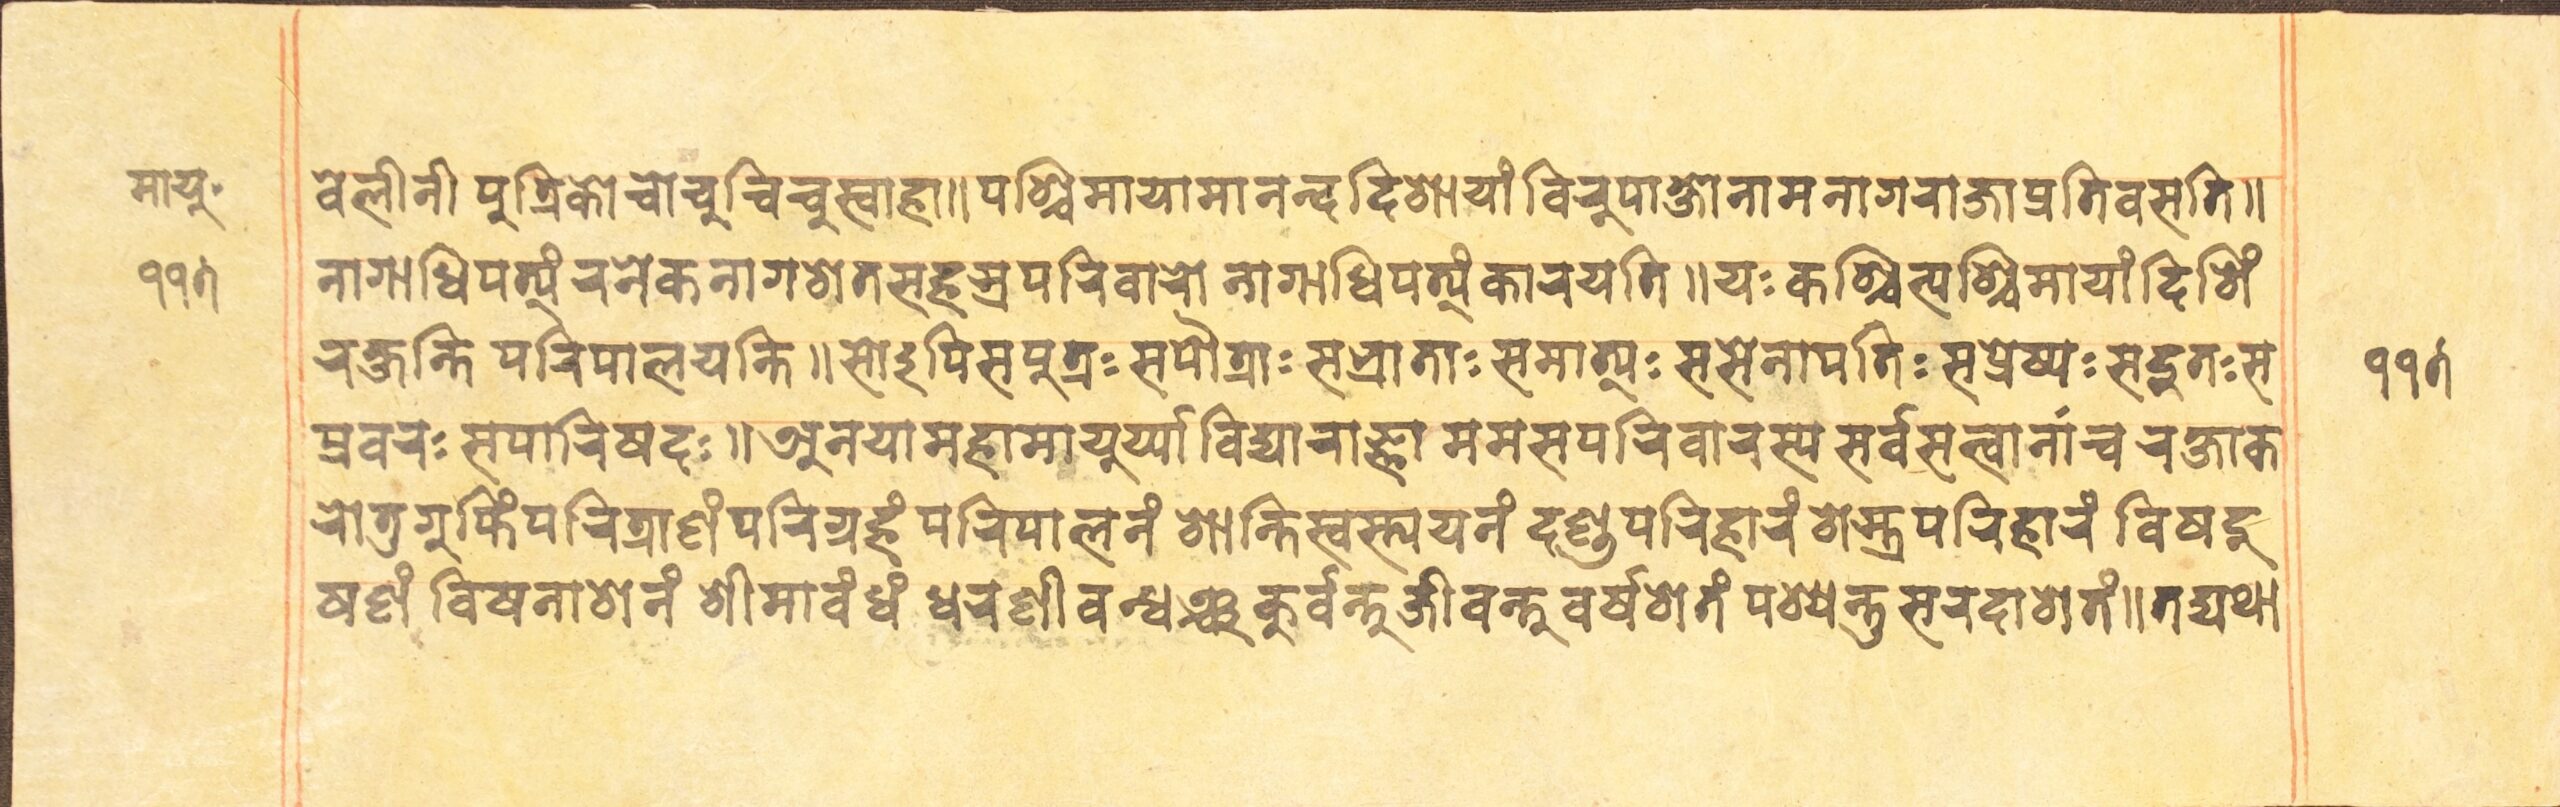 मायु॰
वेलीनी पुत्रिकोचोचुच्चिचुस्वाहा॥पश्चिमायामानन्ददिशायांविरुपाक्षोनामनागराजाप्रतिवसति॥
११९
नागाधिपत्यंरनेकनागशतसहस्रपरिवारो नागाधिपत्यंकारयति॥यःकश्चित्पश्चिमायांदिशिं
रक्षन्ति परिपालयन्ति॥सोऽपिसपुत्रःसपौत्राःसभ्राताःसमात्यःससेनापतिःसप्रेष्यःसदुतःस
११९
प्रवरःसपारिषदः॥अनयामहामायुर्य्याविद्याराज्ञा ममसपरिवारस्य सर्वसत्वानांच रक्षाक
रोतुगुप्तिंपरित्राणंपरिग्रहंपरिपालनं शान्तिस्वस्त्ययनं दण्डपरिहारंशस्त्रपरिहारं विषदु
षणं विषनाशनं शीमावंधं धरणीवन्धञ्च कुर्वन्तुजीवन्तुवर्षशतं पश्यन्तुसरदाशतं॥तद्यथा